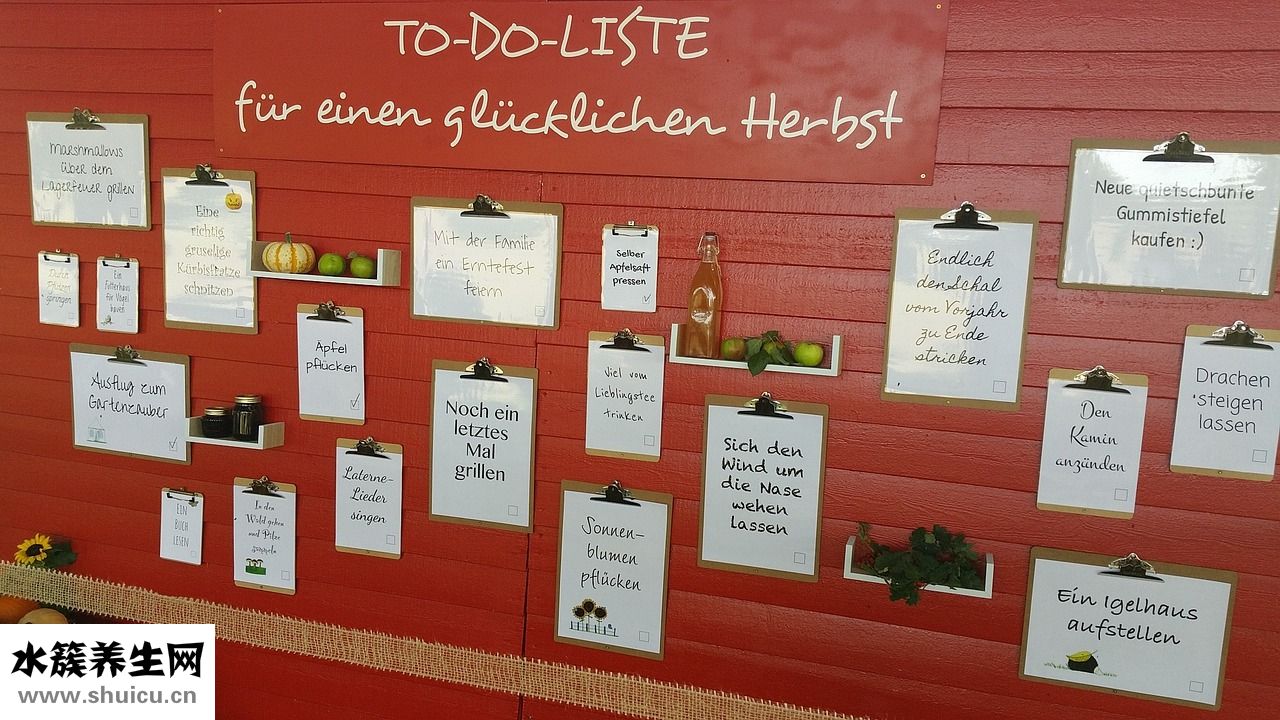 TO-DO-LISTE
für einen glücklichen Herbst
Marshmallows
über dem
Lagerfeuer grillen
Eine
richtig
gruselige
Kürbisfratze
schnitzen
Durch
Pfützen
springen
Ein
Futterhaus
für Vögel
bauen
Mit der Familie
ein Erntefest
feiern
Selber
Apfelsaft
pressen
Endlich
den Schal
vom Vorjahr
zu Ende
stricken
Neue quietschbunte
Gummistiefel
kaufen :)
Ausflug zum
Gartenzauber
Äpfel
pflücken
Noch ein
letztes
Mal
grillen
Viel vom
Lieblingstee
trinken
Sich den
Wind um
die Nase
wehen
lassen
Den
Kamin
anzünden
Drachen
steigen
lassen
EIN
BUCH
LESEN
In den
Wald gehen
und Pilze
sammeln
Laterne-
Lieder
singen
Sonnen-
blumen
pflücken
Ein Igelhaus
aufstellen
水簇养生网
www.shuicu.cn